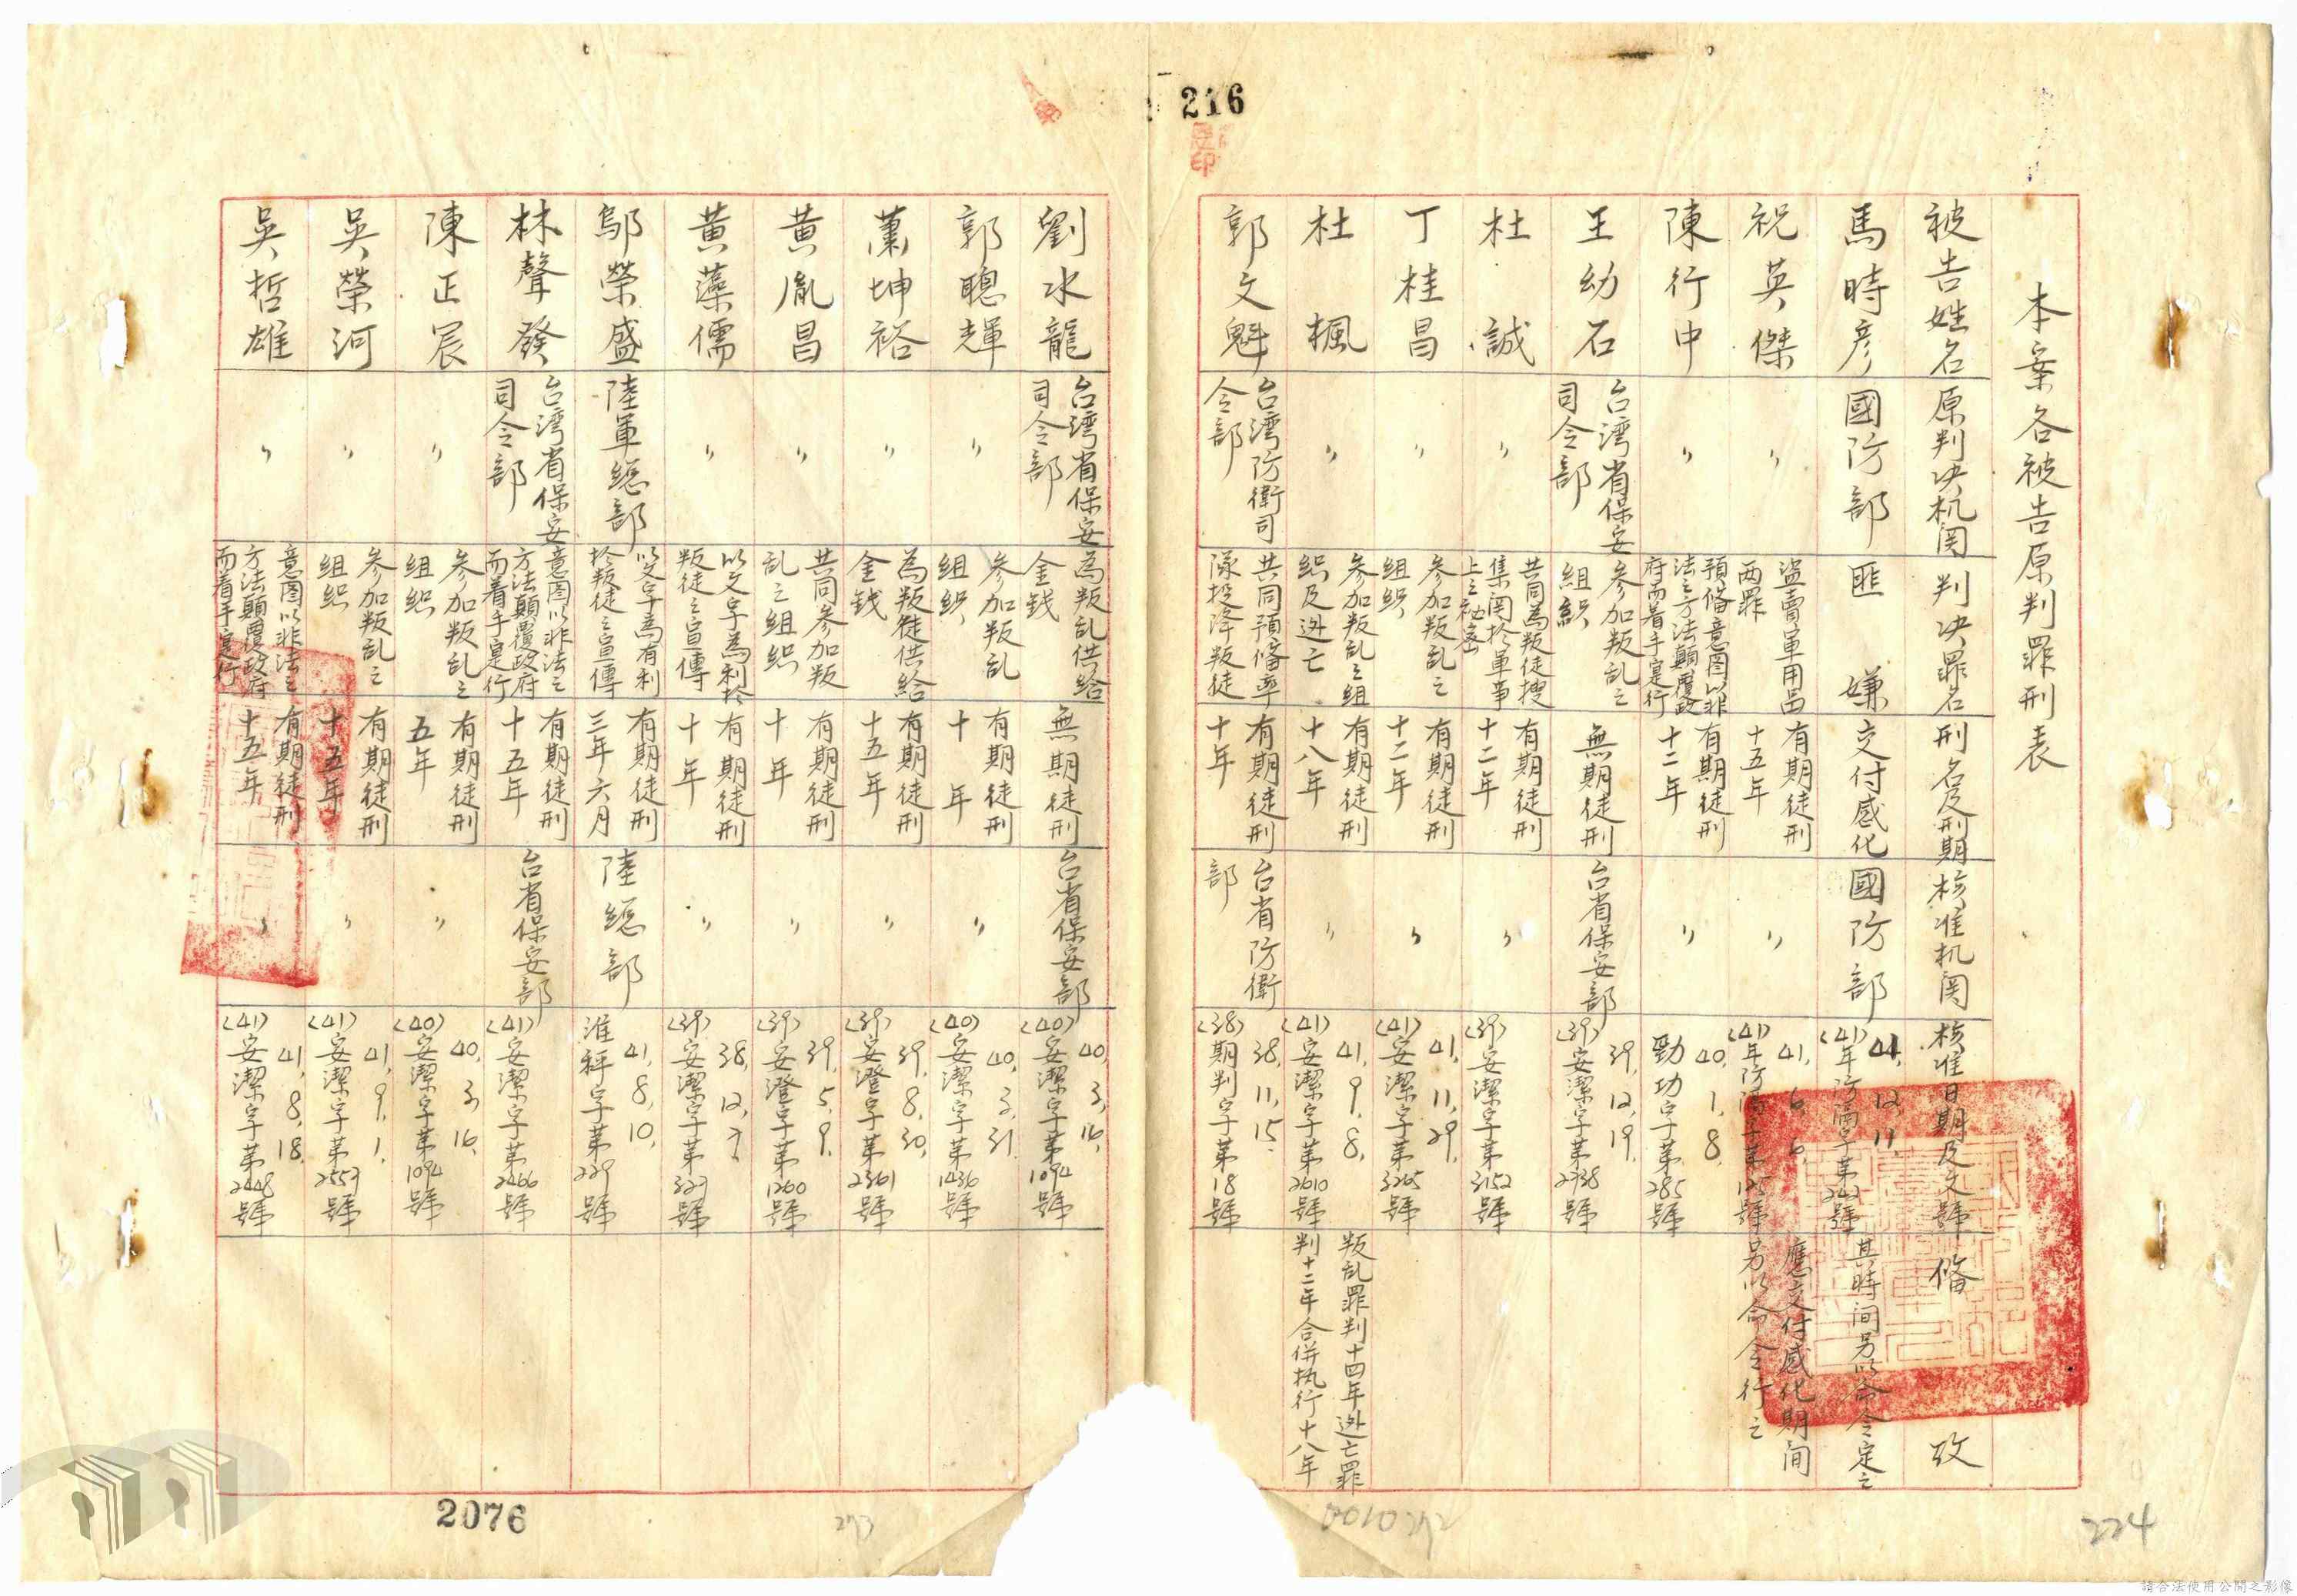 216
本案各被告原判罪刑表
被告姓名 原判决机関 判决罪名 刑名及刑期 核准机関 核准日期及文號 俻攷
馬時彦 國防部 匪嫌 交付感化 國防部 41.12.11. (41)年防隔字第242號 其時間另以命令定之
祝英傑 〃 盗賣軍用品两罪 有期徒刑十五年 〃 41.6.6. (41)年防隔字第125號 應交付感化期间另以命令行之
陳行中 〃 預俻意图以非法之方法顛覆政府而着手寔行 有期徒刑十二年 〃 40.1.8. 勁功字第285號
王幼石 台湾省保安司令部 参加叛乱之组織 無期徒刑 台省保安部 39.12.19. (39)安潔字第2738號
杜誠 〃 共同為叛徒搜集関於軍事上之祕密 有期徒刑十二年 〃 (39)安潔字第3152號
丁桂昌 〃 参加叛乱之组织 有期徒刑十二年 〃 41.11.29. (41)安潔字第3265號
杜楓 〃 参加叛乱之组织及逃亡 有期徒刑十八年 〃 41.9.8. (41)安潔字第2610號 叛乱罪判十四年逃亡罪判十二年合併执行十八年
郭文魁 台湾防衛司令部 共同預俻率隊投降叛徒 有期徒刑十年 台省防衛部 38.11.15. (38)期判字第18號
劉水龍 台湾省保安司令部 為叛乱供给金钱 無期徒刑 台省保安部 40.3.16. (40)安潔字第1094號
郭聰輝 〃 参加叛乱组织 有期徒刑十年 〃 40.3.31. (40)安潔字第1436號
蕭坤裕 〃 為叛徒供給金钱 有期徒刑十五年 〃 39.8.30. (39)安澄字第2361號
黄胤昌 〃 共同参加叛乱之组织 有期徒刑十年 〃 39.5.9. (39)安澄字第1260號
黄藻儒 〃 以文字為利於叛徒之宣傳 有期徒刑十年 〃 38.12.7. (39)安潔字第327號
鄔榮盛 陸軍總部 以文字為有利於叛徒之宣傳 有期徒刑三年六月 陸總部 41.8.10. 淮秤字第239號
林聲發 台湾省保安司令部 意图以非法之方法顛覆政府而着手寔行 有期徒刑十五年 台省保安部 (41)安潔字第2466號
陳正宸 〃 参加叛乱之组织 有期徒刑五年 〃 40.3.16. (40)安潔字第1094號
吳榮河 〃 参加叛乱之组织 有期徒刑十五年 〃 41.9.1. (41)安潔字第2557號
吳哲雄 〃 意图以非法之方法顛覆政府而着手寔行 有期徒刑十五年 〃 41.8.18. (41)安潔字第2448號
2076
273
0010272
224
請合法使用公開之影像